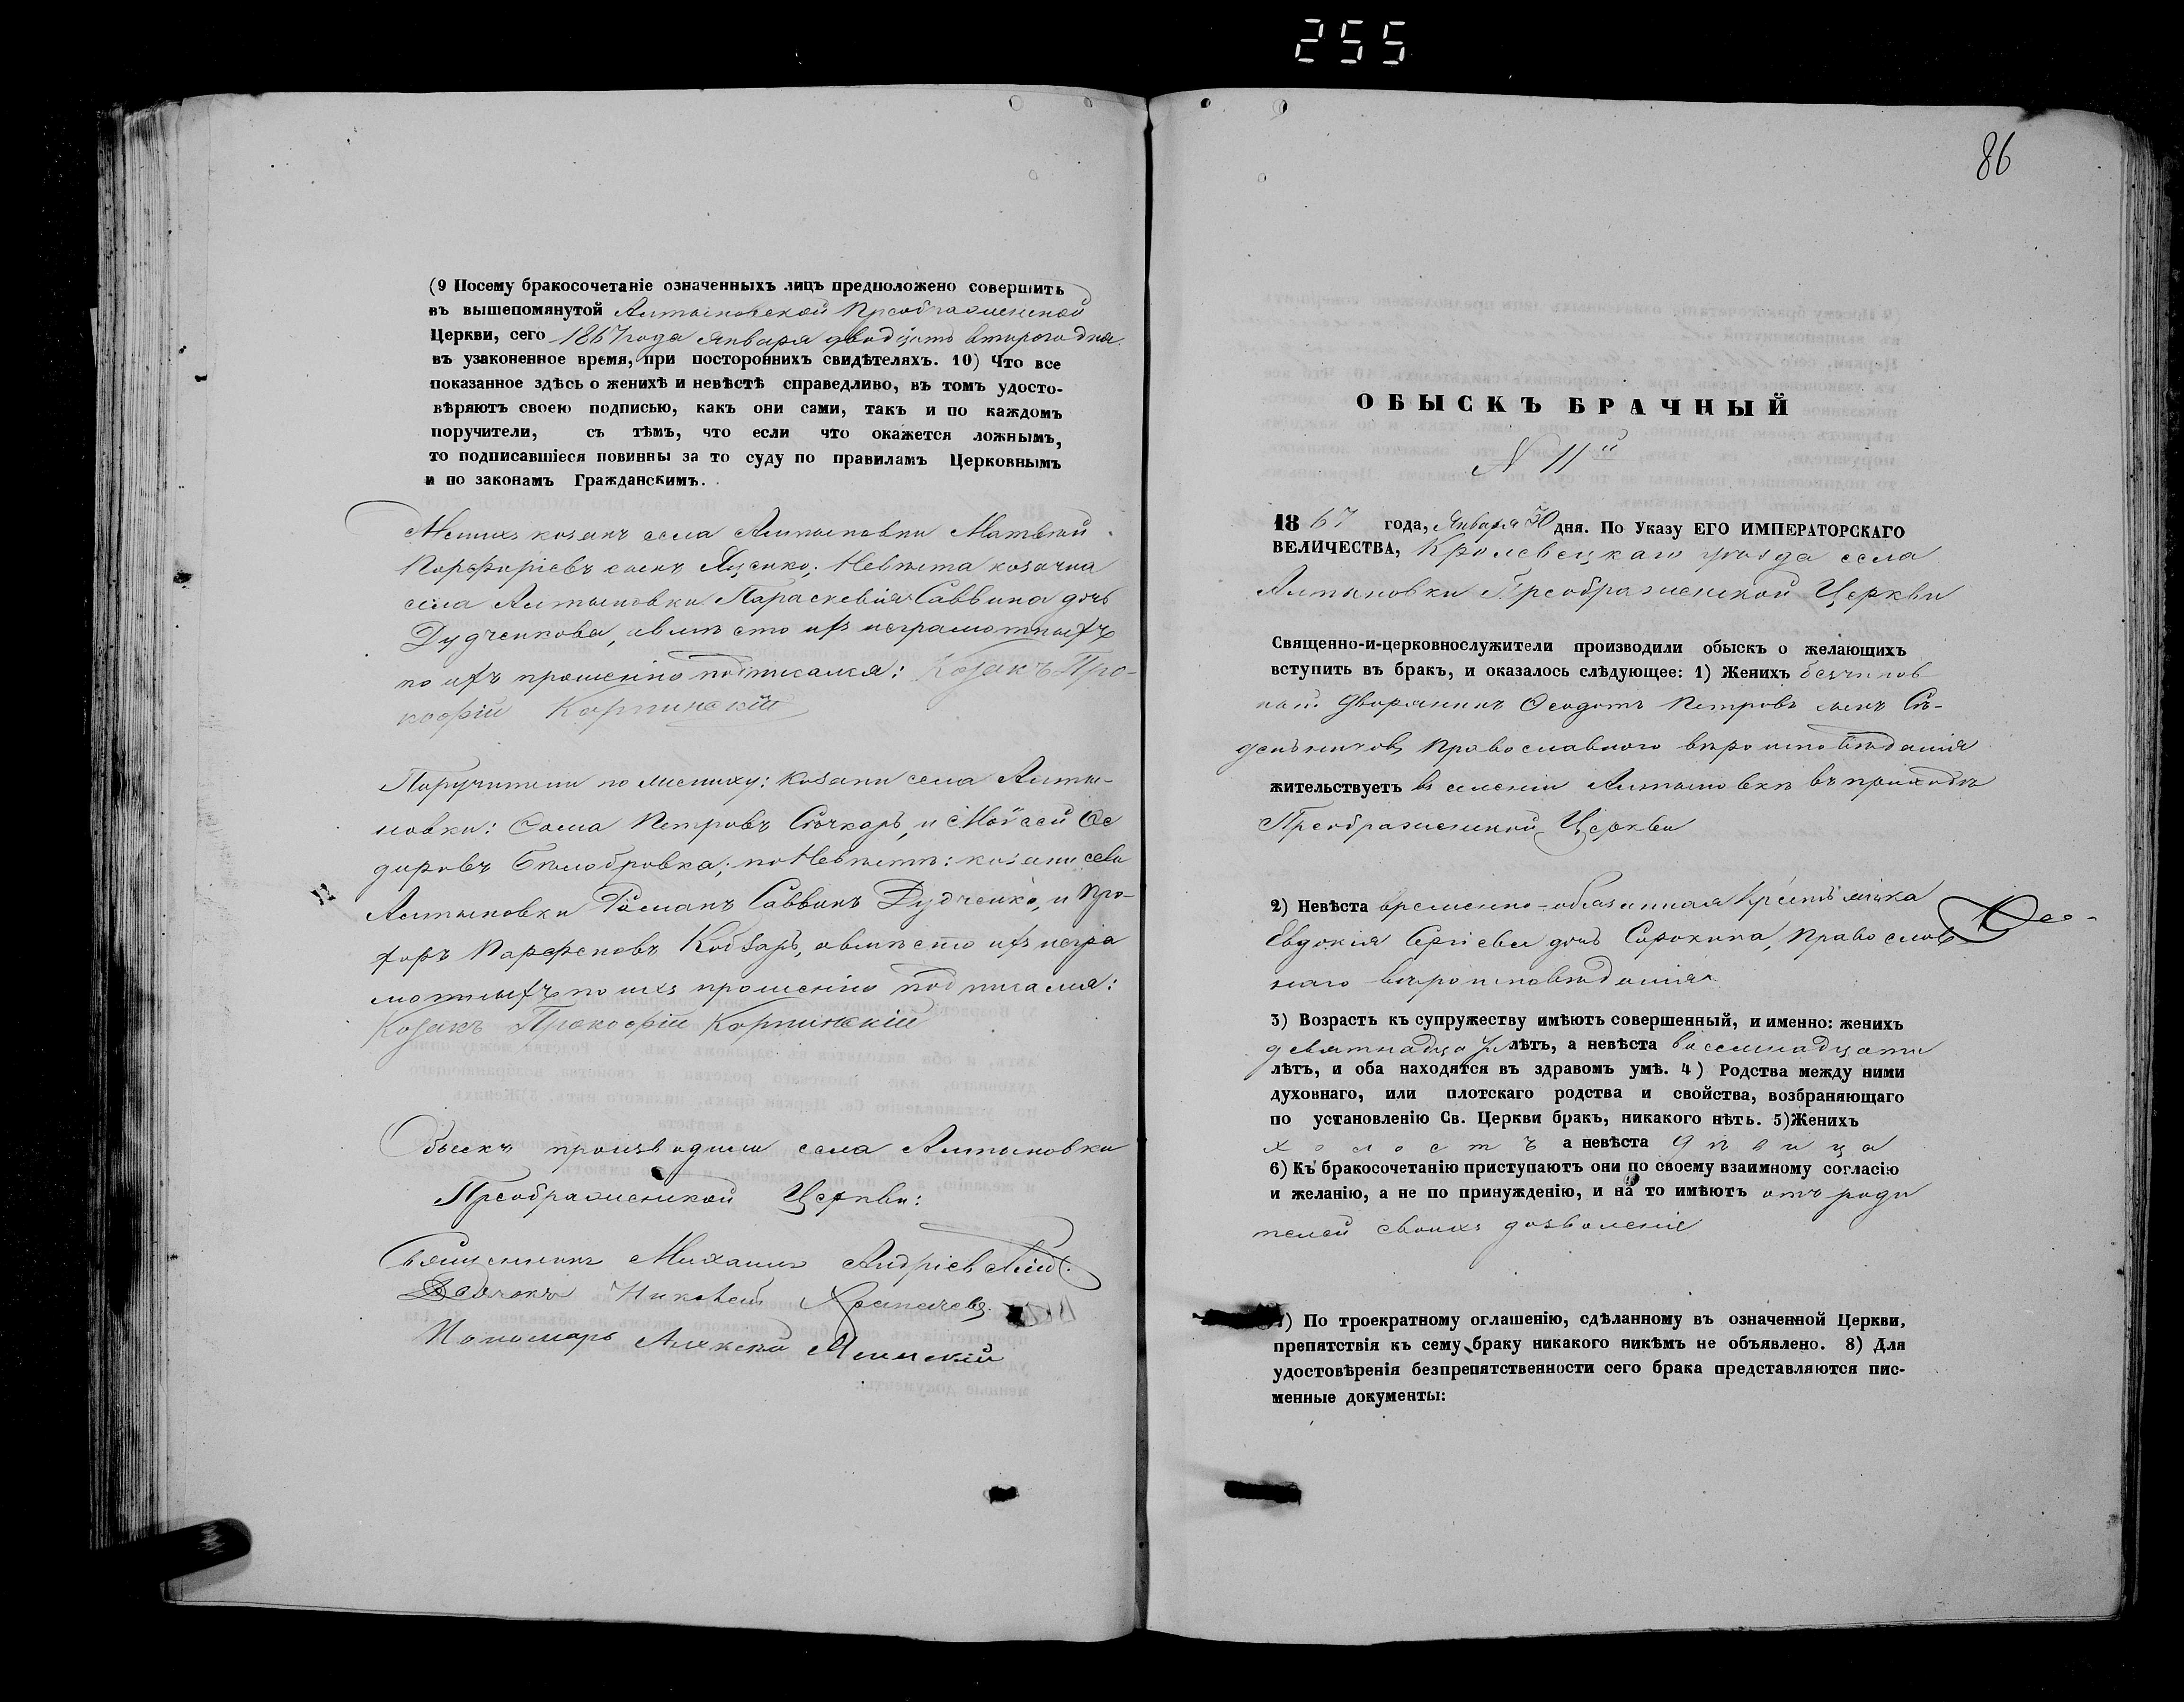 255
(9 Посему бракосочетаніе означенныхъ лицъ предположено совершить
въ вышепомянутой Алтыновской Преображенской
Церкви, сего 1867 года Января двадцать втораго дня
въ узаконенное время, при постороннихъ свидѣтеляхъ. 10) Что все
показанное здѣсь о женихѣ и невѣстѣ справедливо, въ томъ удосто-
вѣряютъ своею подписью, какъ они сами, такъ и по каждомъ
поручители, съ тѣмъ, что если что окажется ложнымъ,
то подписавшіеся повинны за то суду по правиламъ Церковнымъ
и по законамъ Гражданскимъ.
Женихъ козакъ села Алтыновки Матвѣй
Порфиріевъ сынъ Яценко; Невѣста козачка
села Алтыновки Параскевія Саввина дочь
Дудченкова, а вмѣсто ихъ неграмотныхъ
по ихъ прошенію подписался: Козакъ Про-
кофій Корпинскій
Поручители по жениху: козаки села Алты-
новки: Сама Петровъ Сѣчкарь, и Моѵсей Ѳе
доровъ Бѣлобровка; по Невѣстѣ: козаки села
Алтыновки Романъ Саввинъ Дудченко, и Про-
хоръ Парфеновъ Кобзарь, а вмѣсто ихъ негра
мотныхъ по ихъ прошенію подписался:
Козакъ Прокофій Корпинскій
Обыскъ производили села Алтыновки
Преображенской Церкви:
Священникъ Михаилъ Андріевскій
Дьячокъ Николай
Пономарь Алексѣй
86
ОБЫСКЪ БРАЧНЫЙ
N 11й
1867 года, Января 30 дня. По Указу ЕГО ИМПЕРАТОРСКАГО
ВЕЛИЧЕСТВА, Кролевецкаго уѣзда села
Алтыновки Преображенской Церкви
Священно-и-церковнослужители производили обыскъ о желающихъ
вступить въ бракъ, и оказалось слѣдующее: 1) Женихъ безчинов
ный дворянинъ Ѳеодотъ Петровъ сынъ
Православнаго вѣроисповѣданія
жительствуетъ въ селеніи Алтыновкѣ въ приходѣ
Преображенской Церкви
2) Невѣста временно-обязанная Крестьянка
Евдокія Сергіева дочь Сорокина, Православ
наго вѣроисповѣданія
3) Возрастъ къ супружеству имѣютъ совершенный, и именно: женихъ
девятнадцать лѣтъ, а невѣста восемнадцати
лѣтъ, и оба находятся въ здравомъ умѣ. 4) Родства между ними
духовнаго, или плотскаго родства и свойства, возбраняющаго
по установленію Св. Церкви бракъ, никакого нѣтъ. 5)Женихъ
холостъ а невѣста дѣвица
6) Къ бракосочетанію приступаютъ они по своему взаимному согласію
и желанію, а не по принужденію, и на то имѣютъ отъ роди
телей своихъ дозволеніе
7) По троекратному оглашенію, сдѣланному въ означенной Церкви,
препятствія къ сему браку никакого никѣмъ не объявлено. 8) Для
удостовѣренія безпрепятственности сего брака представляются пис-
менные документы: